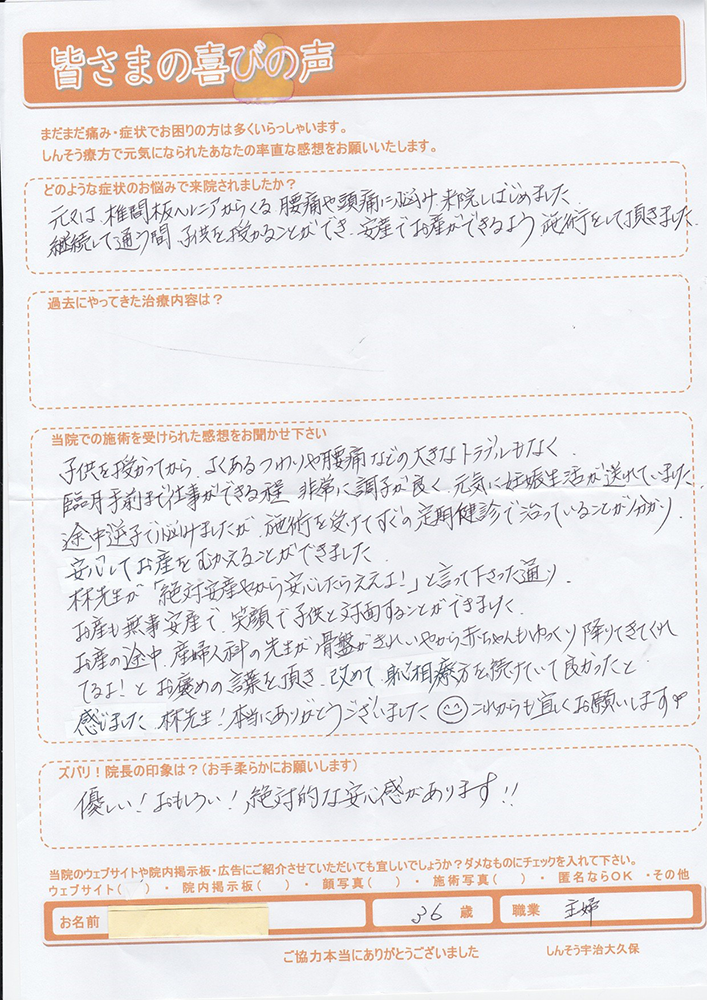 皆さまの喜びの声
まだまだ痛み・症状でお困りの方は多くいらっしゃいます。
しんそう療方で元気になられたあなたの率直な感想をお願いいたします。
どのような症状のお悩みで来院されましたか？
元々は、椎間板ヘルニアからくる、腰痛や頭痛に悩み、来院しはじめました。
継続して通う間、子供を授かることができ、安産でお産ができるよう、施術をして頂きました。
過去にやってきた治療内容は？
当院での施術を受けられた感想をお聞かせ下さい
子供を授かってから、よくあるつわりや腰痛などの大きなトラブルもなく、
臨月手前まで仕事ができる程、非常に調子が良く、元気に妊娠生活が送れていました。
途中逆子で悩みましたが、施術を受けてすぐの定期健診で治っていることが分かり、
安心してお産をむかえることができました。
林先生が「絶対安産やから安心したらええよ！」と言って下さった通り、
お産も無事安産で、笑顔で子供と対面することができました。
お産の途中、産婦人科の先生が骨盤がきれいやから赤ちゃんもゆっくり降りてきてくれ
てるよ！とお褒めの言葉を頂き、改めて、身心相療方を続けていて良かったと
感じました。林先生！本当にありがとうございました これからも宜しくお願いします♥
ズバリ！院長の印象は？（お手柔らかにお願いします）
優しい！おもしろい！絶対的な安心感があります!!
当院のウェブサイトや院内掲示板・広告にご紹介させていただいても宜しいでしょうか？ダメなものにチェックを入れて下さい。
ウェブサイト（　）・院内掲示板（　）・顔写真（　）・施術写真（　）・匿名ならOK ・その他
お名前 36 歳 職業 主婦
ご協力本当にありがとうございました しんそう宇治大久保